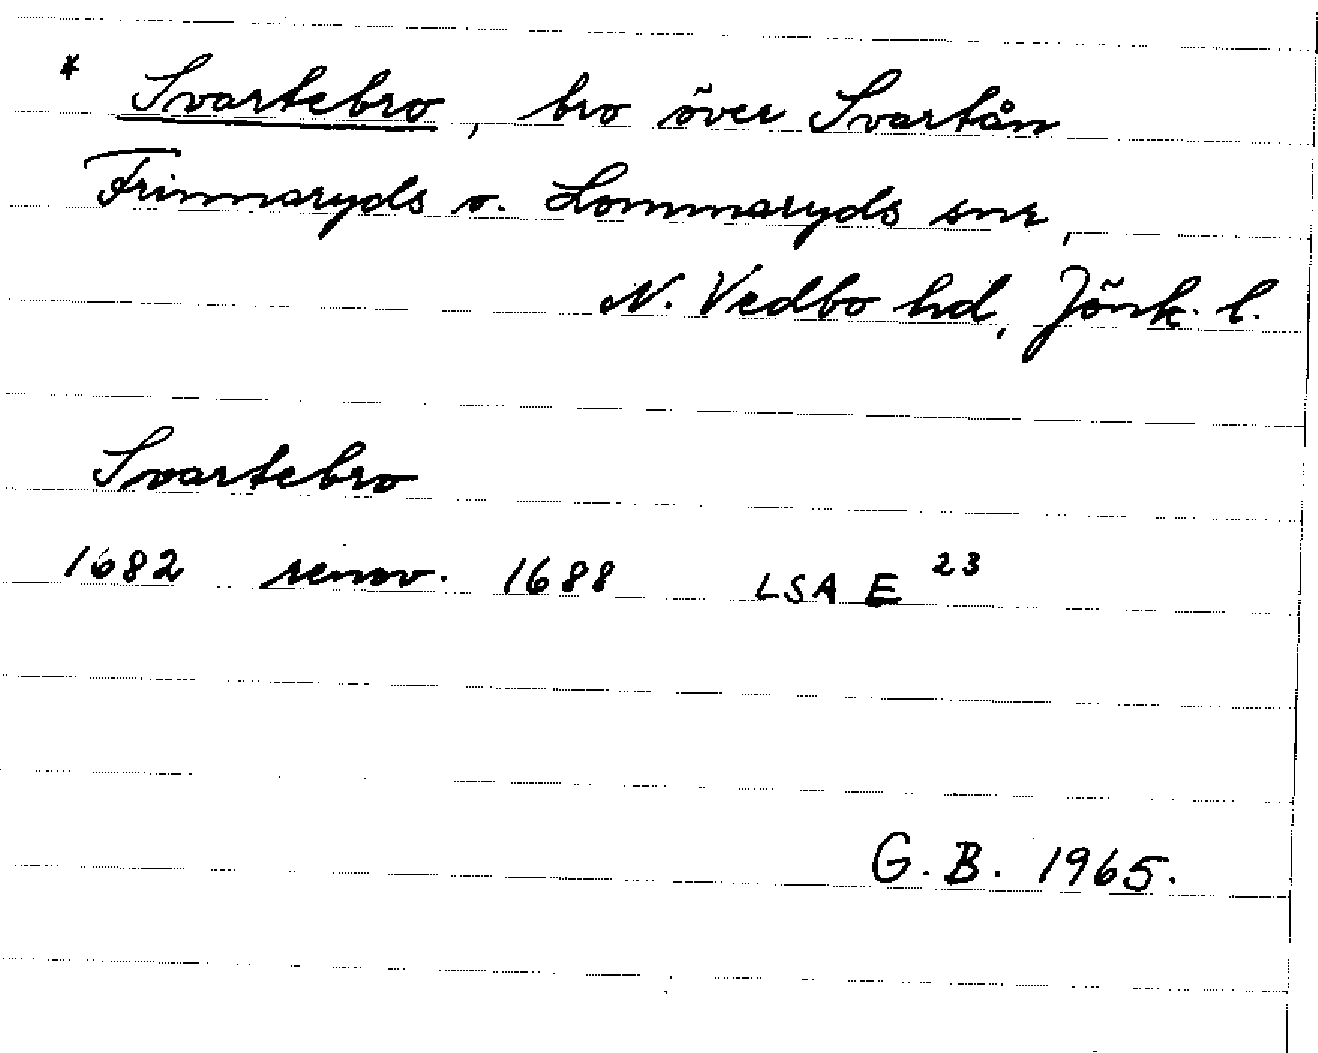 * Svartebro, bro över Svartån
Frinnaryds o. Lommaryds snr,
N. Vedbo hd, Jönk. l.
Svartebro
1682 renov. 1688 LSA E 23
G. B. 1965.